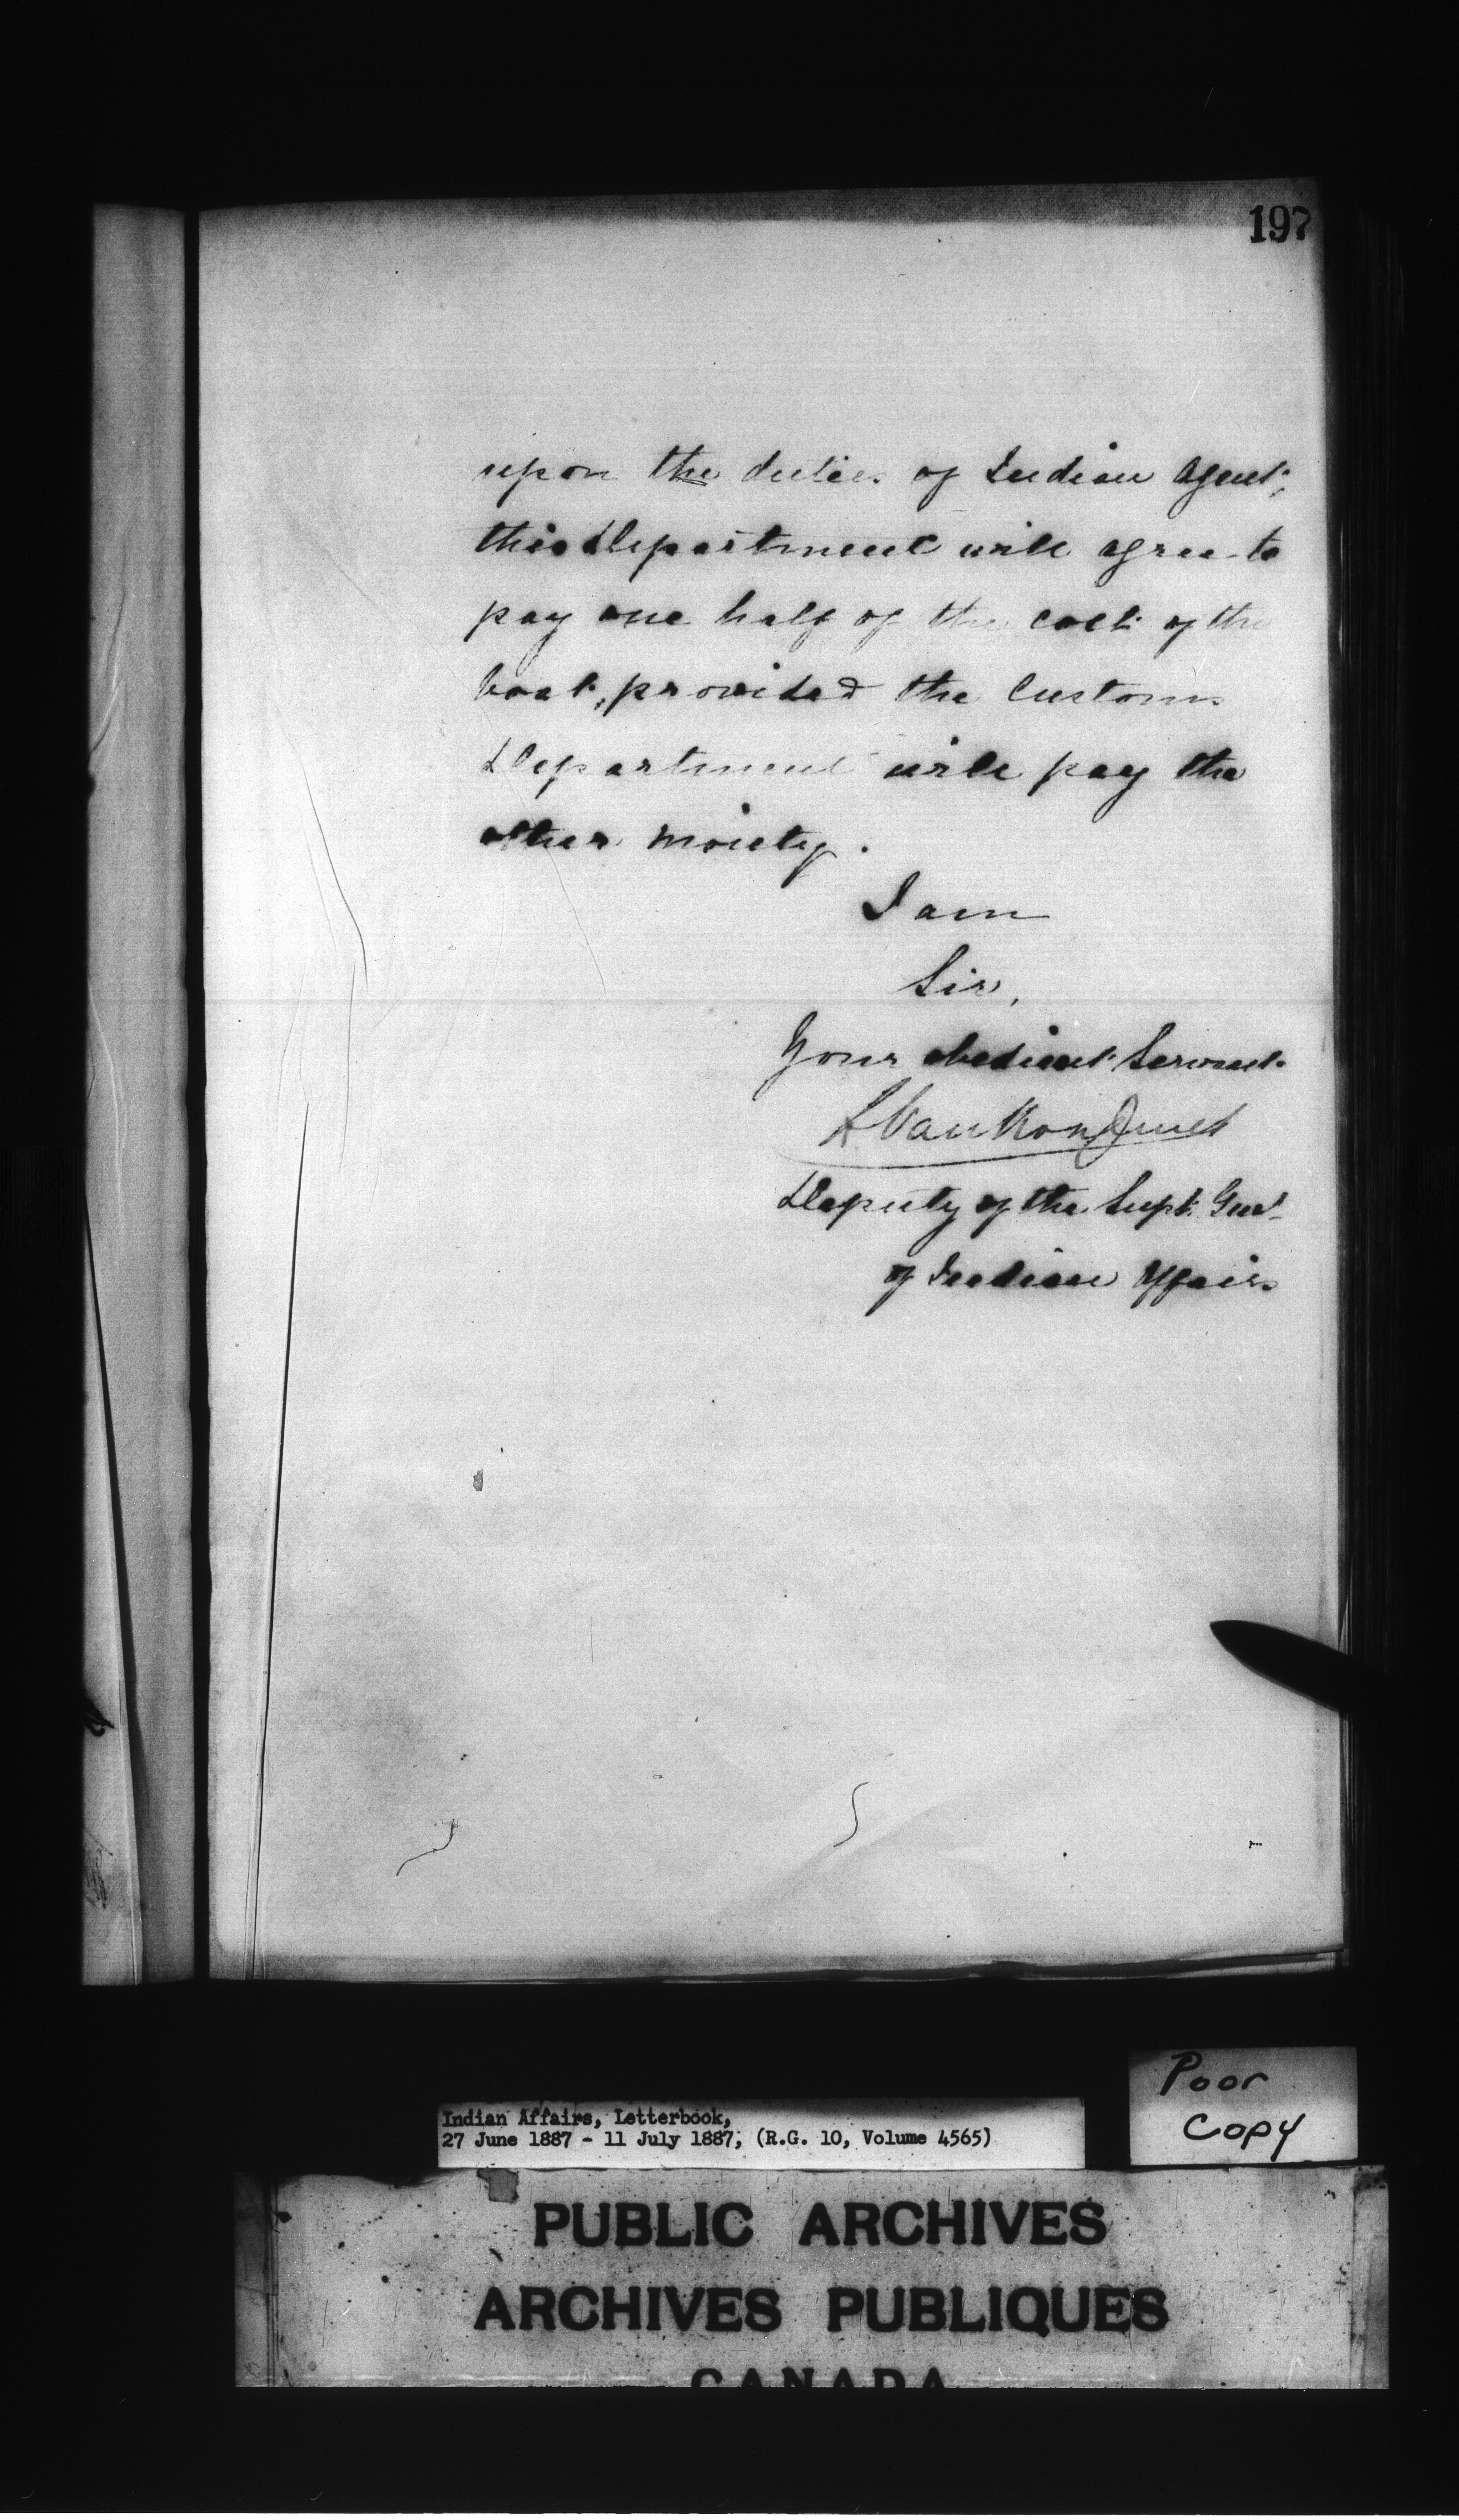 197
upon the duties of Indian Agent;
this Department will agree to
pay one half of the cost of the
boat, provided the Customs
Department will pay the
other moiety.
I am
Sir,
Your obedient Servant
L VanKoughnet
Deputy of the Supt. Genl.
of Indian Affairs
Poor
Copy
Indian Affairs, Letterbook,
27 June 1887 - 11 July 1887, (R.G. 10, Volume 4565)
PUBLIC ARCHIVES
ARCHIVES PUBLIQUES
CANADA